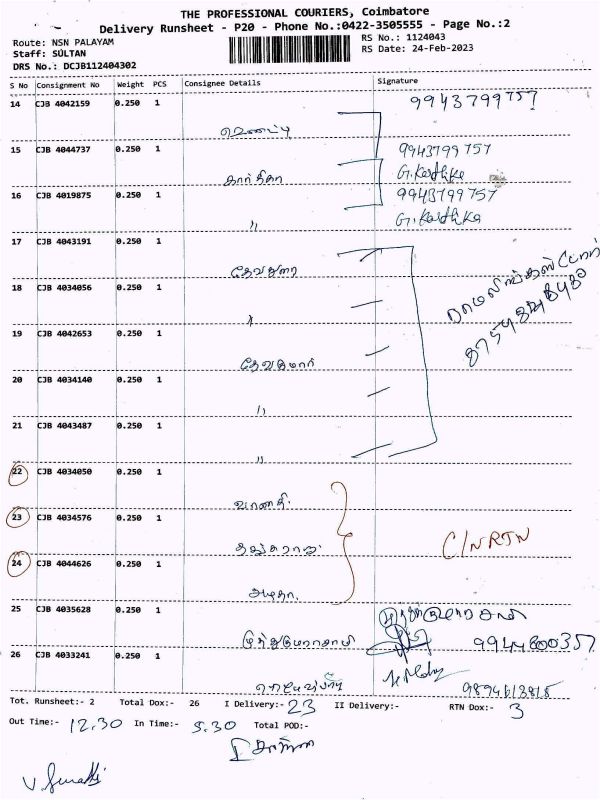 THE PROFESSIONAL COURIERS, Coimbatore
Delivery Runsheet - P20 - Phone No.:0422-3505555 - Page No.:2
Route: NSN PALAYAM
RS No.: 1124043
Staff: SULTAN
RS Date: 24-Feb-2023
DRS No.: DCJB112404302
S No Consignment No Weight PCS Consignee Details Signature
14 CJB 4042159 0.250 1 9943799757
15 CJB 4044737 0.250 1 9943799757
கார்த்திகா G.Karthika
16 CJB 4019875 0.250 1 9943799757
〃 G.Karthika
17 CJB 4043191 0.250 1
தேவதுரை
18 CJB 4034056 0.250 1
〃
19 CJB 4042653 0.250 1
தேவகுமார்
20 CJB 4034140 0.250 1
〃
21 CJB 4043487 0.250 1
〃
22 CJB 4034050 0.250 1
வாணதி.
23 CJB 4034576 0.250 1
தங்கராஜ். C/NRTN
24 CJB 4044626 0.250 1
25 CJB 4035628 0.250 1
முத்துகுமாரசாமி 9944800357
26 CJB 4033241 0.250 1
Tot. Runsheet:- 2 Total Dox:- 26 I Delivery:- 23 II Delivery:- RTN Dox:- 3
Out Time:- 12.30 In Time:- 5.30 Total POD:-